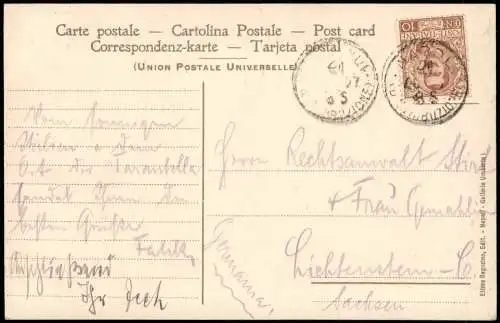 Carte postale — Cartolina Postale — Post card
Correspondenz-karte — Tarjeta postal
(UNION POSTALE UNIVERSELLE)
Vom sonnigen
Sizilien u. dem
Ort der Tarantella
sendet Ihnen die
besten Grüße
Anschließend
Ihr
Herrn Rechtsanwalt
+ Frau Gemahlin
Lichtenstein-C
Sachsen
Germania
Ettore Ragozino, Edit. - Napoli - Galleria Umberto I